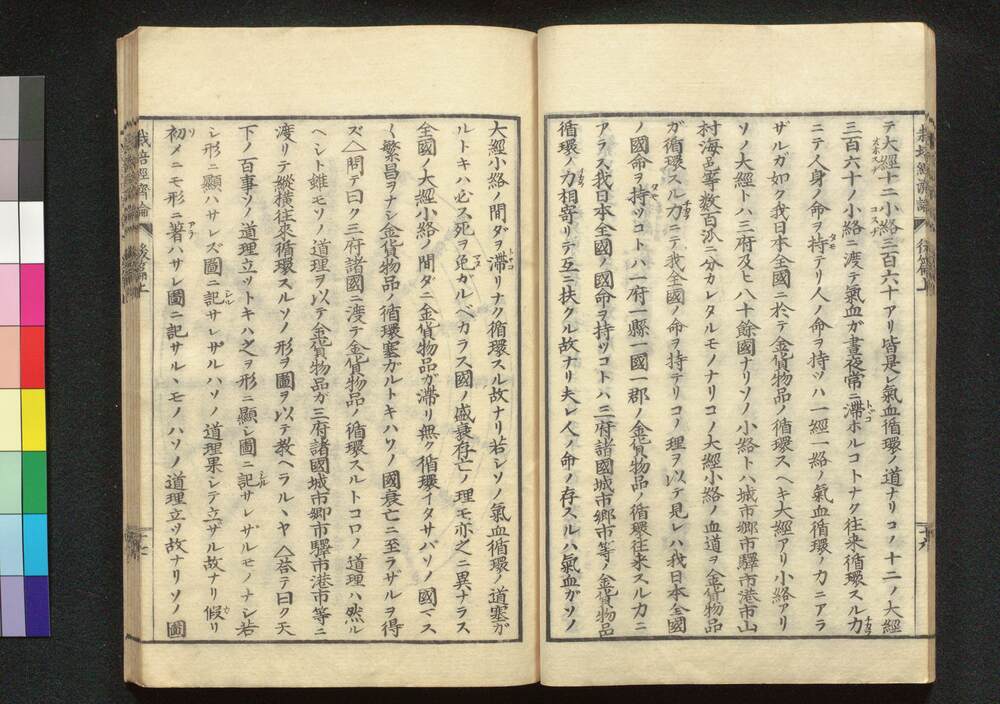 テ大經十二小絡三百六十アリ皆是レ氣血循環ノ道ナリコノ十二ノ大經
三百六十ノ小絡ニ渡テ氣血ガ晝夜常ニ滯ホルコトナク往来循環スル力
ニテ人身ノ命ヲ持テリ人ノ命ヲ持ツハ一經一絡ノ氣血循環ノ力ニアラ
ザルガ如ク我日本全國ニ於テ金貨物品ノ循環スヘキ大經アリ小絡アリ
ソノ大經トハ三府及ヒ八十餘國ナリソノ小絡トハ城市郷市驛市港市山
村海邑等数百派ニ分カレタルモノナリコノ大經小絡ノ血道ヲ金貨物品
ガ循環スル力ニテ我全國ノ命ヲ持テリコノ理ヲ以テ見レハ我日本全國
ノ國命ヲ持ツコトハ一府一縣一國一郡ノ金貨物品ノ循環往来スル力ニ
アラス我日本全國ノ國命ヲ持ツコトハ三府諸國城市郷市等ノ金貨物品
循環ノ力相寄リテ互ニ扶クル故ナリ夫レ人ノ命ノ存スルハ氣血ガソノ
大經小絡ノ間ダヲ滯リナク循環スル故ナリ若シソノ氣血循環ノ道塞ガ
ルトキハ必ス死ヲ免ガルベカラス國ノ盛衰存亡ノ理モ亦之ニ異ナラス
全國ノ大經小絡ノ間ダニ金貨物品ガ滯リ無ク循環イタサバソノ國マス
〱繁昌ヲナシ金貨物品ノ循環塞カルトキハソノ國衰亡ニ至ラザルヲ得
ズ〈問テ曰ク三府諸國ニ渡テ金貨物品ノ循環スルトコロノ道理ハ然ル
ヘシト雖モソノ道理ヲ以テ金貨物品ガ三府諸國城市郷市驛市港市等ニ
渡リテ縱横往來循環スルソノ形ヲ圖ヲ以テ教ヘラルヽヤ〈荅テ曰ク天
下ノ百事ソノ道理立ツトキハ之ヲ形ニ顯シ圖ニ記サレザルモノナシ若
シ形ニ顯ハサレズ圖ニ記サレザルハソノ道理果シテ立ザル故ナリ假リ
初メニモ形ニ著ハサレ圖ニ記サルヽモノハソノ道理立ツ故ナリソノ圖
栽培經濟論　後篇上